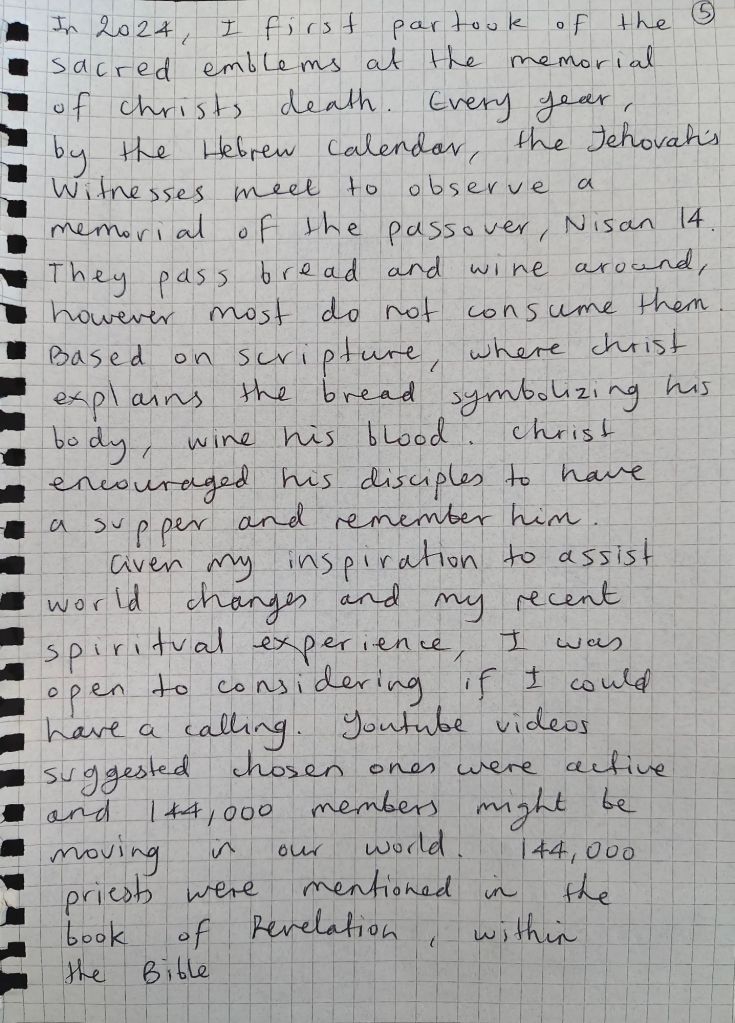 In 2024, I first partook of the ⑤
sacred emblems at the memorial
of christs death. Every year,
by the Hebrew Calendar, the Jehovah's
Witnesses meet to observe a
memorial of the passover, Nisan 14.
They pass bread and wine around,
however most do not consume them.
Based on scripture, where christ
explains the bread symbolizing his
body, wine his blood. Christ
encouraged his disciples to have
a supper and remember him.
Given my inspiration to assist
world changes and my recent
spiritual experience, I was
open to considering if I could
have a calling. Youtube videos
suggested chosen ones were active
and 144,000 members might be
moving in our world. 144,000
priests were mentioned in the
book of Revelation, within
the Bible